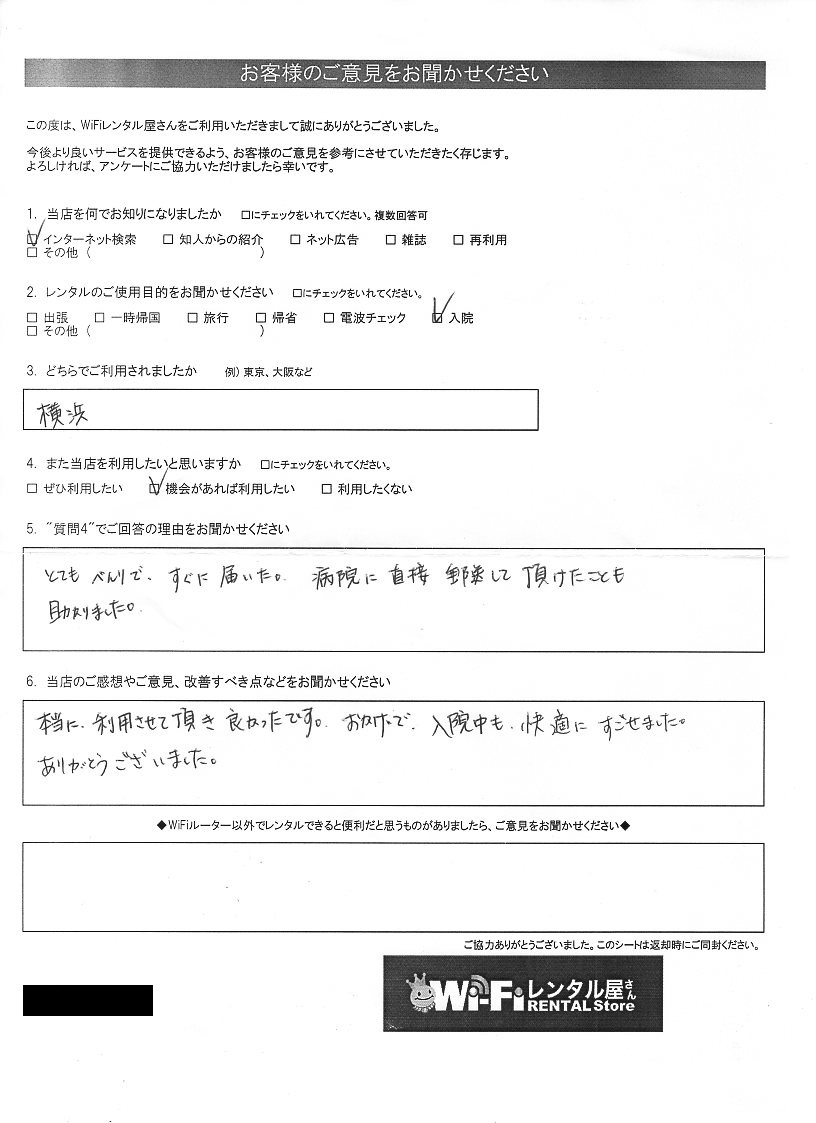 お客様のご意見をお聞かせください
この度は、WiFiレンタル屋さんをご利用いただきまして誠にありがとうございました。
今後より良いサービスを提供できるよう、お客様のご意見を参考にさせていただきたく存じます。
よろしければ、アンケートにご協力いただけましたら幸いです。
1. 当店を何でお知りになりましたか □にチェックをいれてください。複数回答可
☑ インターネット検索 □ 知人からの紹介 □ ネット広告 □ 雑誌 □ 再利用
□ その他 ( )
2. レンタルのご使用目的をお聞かせください □にチェックをいれてください。
□ 出張 □ 一時帰国 □ 旅行 □ 帰省 □ 電波チェック ☑ 入院
□ その他 ( )
3. どちらでご利用されましたか 例) 東京、大阪など
横浜
4. また当店を利用したいと思いますか □にチェックをいれてください。
□ ぜひ利用したい ☑ 機会があれば利用したい □ 利用したくない
5. "質問4"でご回答の理由をお聞かせください
とてもべんりで、すぐに届いた。病院に直接郵送して頂けたことも
助かりました。
6. 当店のご感想やご意見、改善すべき点などをお聞かせください
本当に、利用させて頂き良かったです。おかげで、入院中も、快適にすごせました。
ありがとうございました。
◆WiFiルーター以外でレンタルできると便利だと思うものがありましたら、ご意見をお聞かせください◆
ご協力ありがとうございました。このシートは返却時にご同封ください。
Wi-Fiレンタル屋さん
RENTAL Store